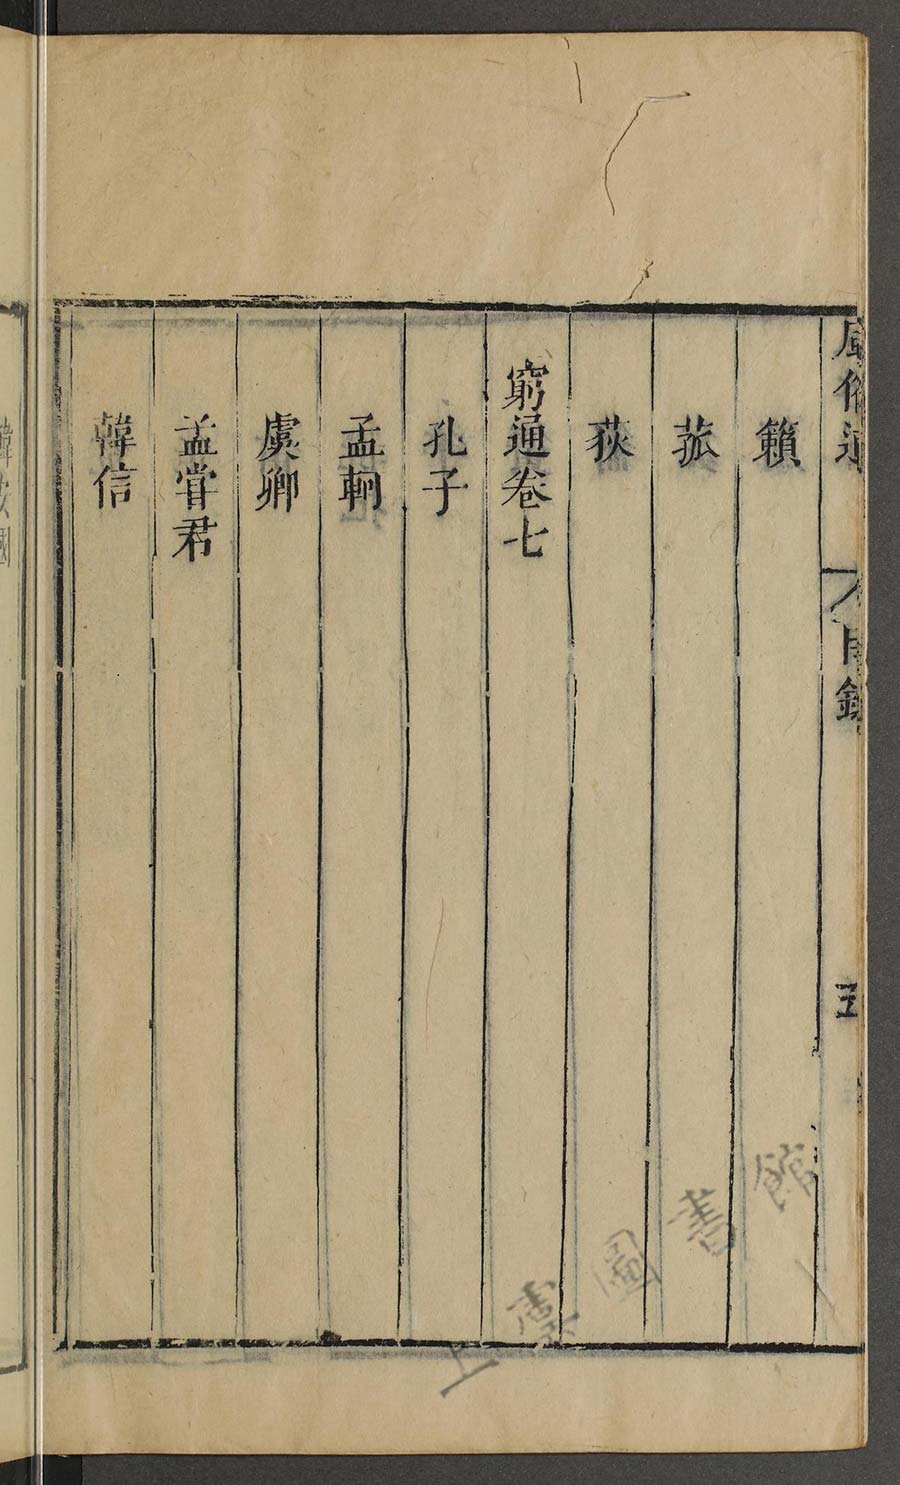 風俗通
目錄
五
籟
菰
荻
窮通卷七
孔子
孟軻
虞卿
孟嘗君
韓信
韓安國
上虞圖書館